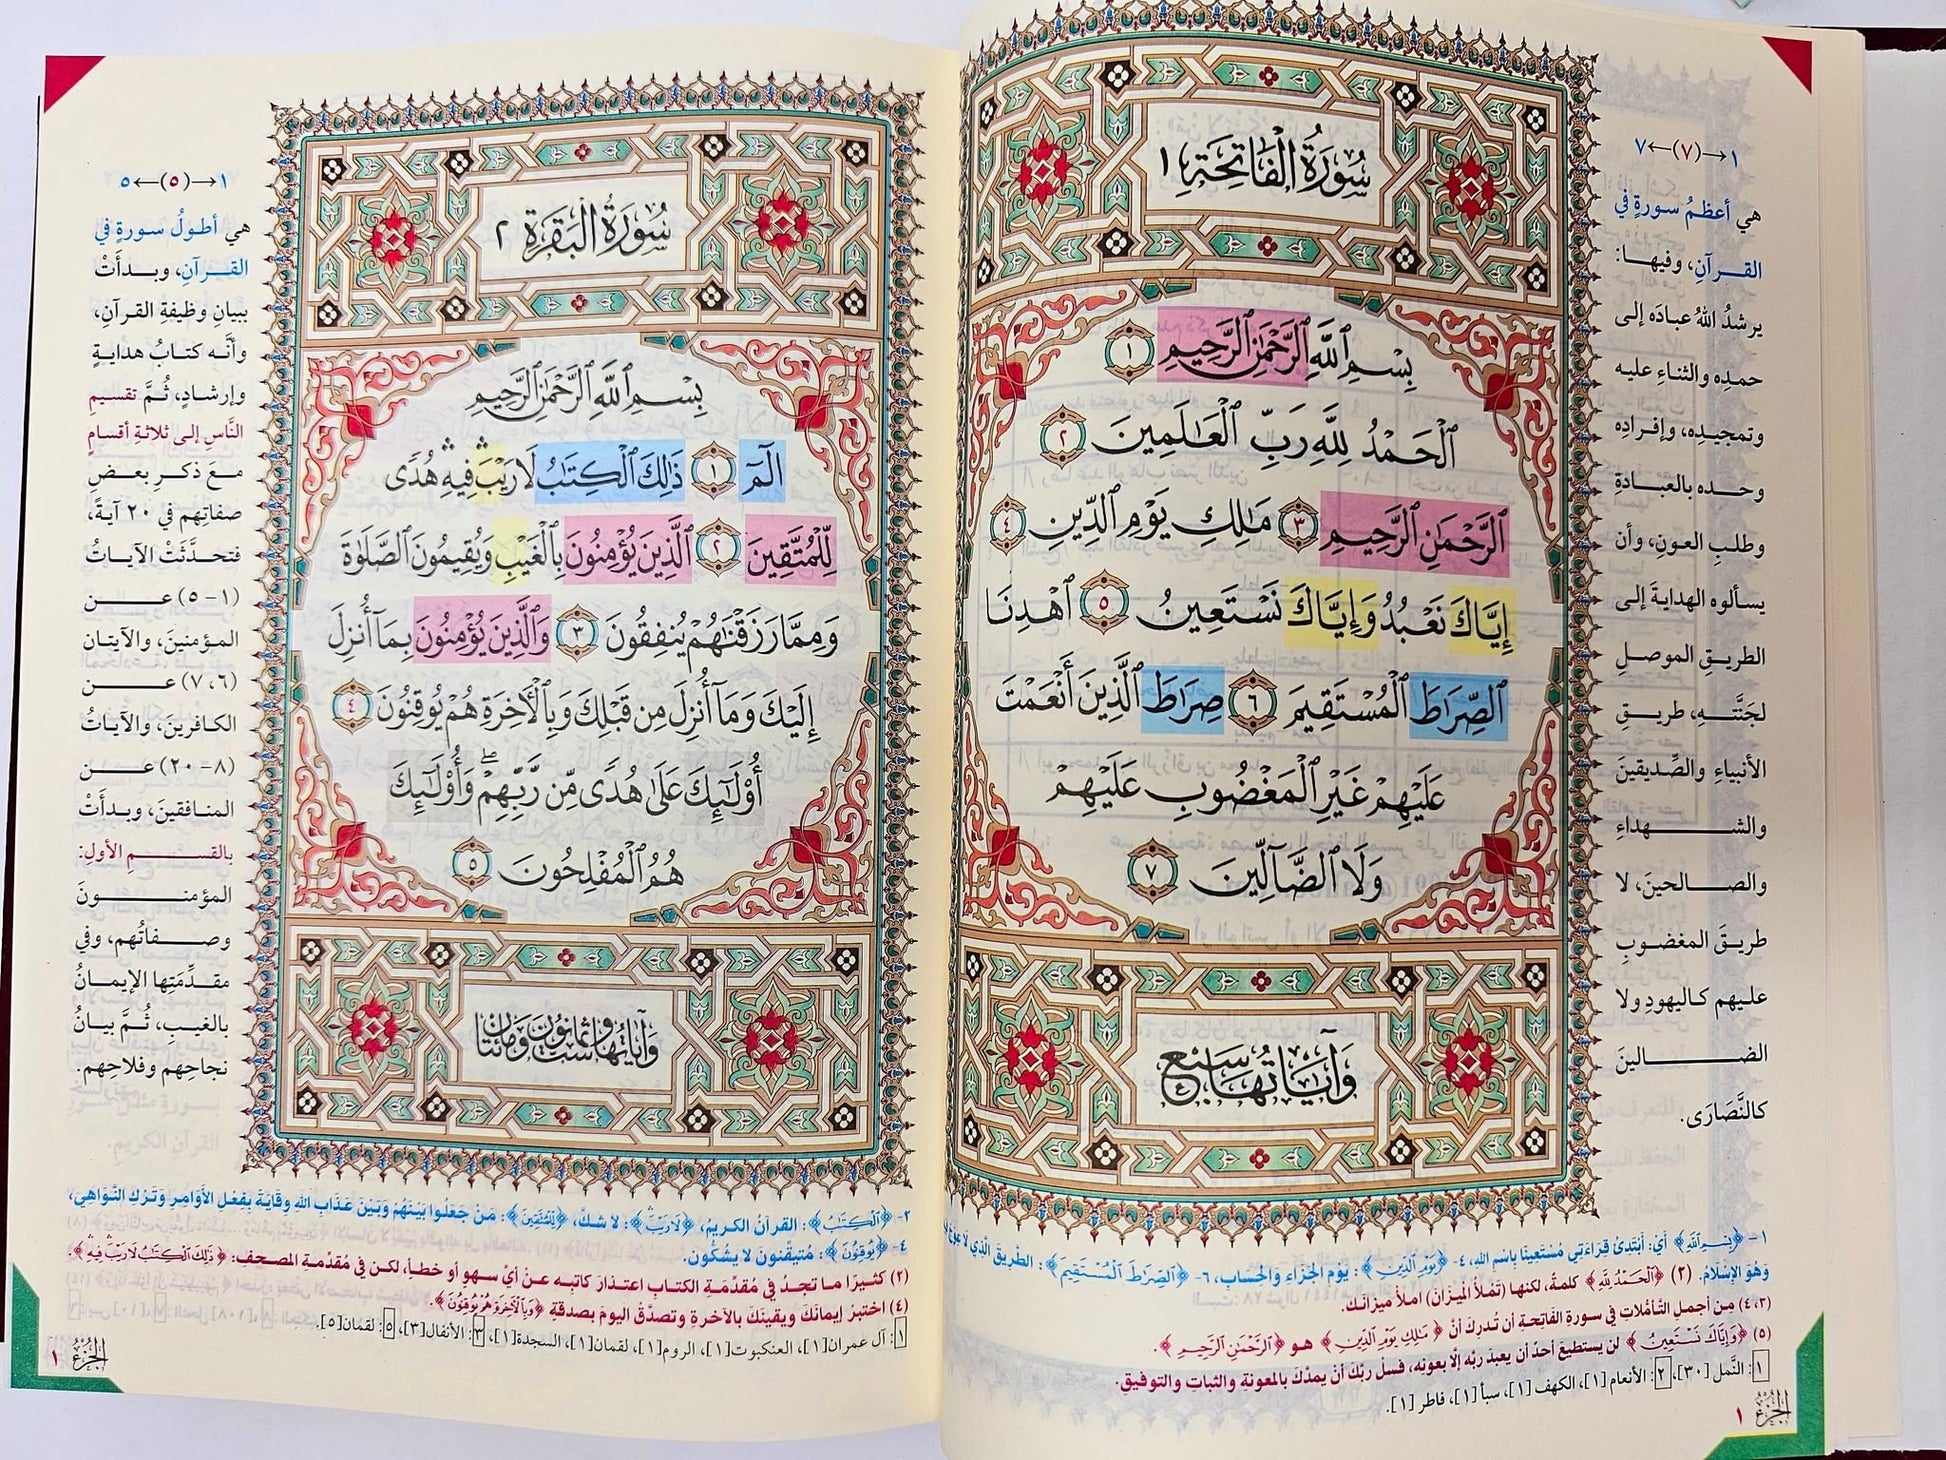 ١→(٧)←٧
هي أعظمُ سورةٍ في
القرآنِ، وفيها:
يرشدُ اللهُ عبادَه إلى
حمدِه والثناءِ عليه
وتمجيدِه، وإفرادِه
وحده بالعبادةِ
وطلبِ العونِ، وأن
يسألوه الهدايةَ إلى
الطريقِ الموصلِ
لجنَّتهِ، طريقِ
الأنبياءِ والصِّديقينَ
والشهداءِ
والصالحينَ، لا
طريقَ المغضوبِ
عليهم كاليهودِ ولا
الضالينَ
كالنَّصَارَى.
سُورَةُ الْفَاتِحَةِ ١
بِسْمِ ٱللَّهِ ٱلرَّحْمَٰنِ ٱلرَّحِيمِ ١
ٱلْحَمْدُ لِلَّهِ رَبِّ ٱلْعَٰلَمِينَ ٢
ٱلرَّحْمَٰنِ ٱلرَّحِيمِ ٣ مَٰلِكِ يَوْمِ ٱلدِّينِ ٤
إِيَّاكَ نَعْبُدُ وَإِيَّاكَ نَسْتَعِينُ ٥ ٱهْدِنَا
ٱلصِّرَٰطَ ٱلْمُسْتَقِيمَ ٦ صِرَٰطَ ٱلَّذِينَ أَنْعَمْتَ
عَلَيْهِمْ غَيْرِ ٱلْمَغْضُوبِ عَلَيْهِمْ
وَلَا ٱلضَّآلِّينَ ٧
وَآيَاتُهَا سَبْعٌ
١- ﴿بِسْمِ ٱللَّهِ﴾ أي: أَبْتَدِئُ قِرَاءَتِي مُسْتَعِينًا بِاسْمِ اللهِ، ٤- ﴿يَوْمِ ٱلدِّينِ﴾: يَوْمِ الجَزَاءِ وَالحِسَابِ، ٦- ﴿ٱلصِّرَٰطَ ٱلْمُسْتَقِيمَ﴾: الطَّرِيقَ الَّذِي لَا عِوَجَ
وَهُوَ الإِسْلَامُ. (٢) ﴿ٱلْحَمْدُ لِلَّهِ﴾ كلمةٌ، لكنها (تَمْلَأُ المِيزَانَ) املأ ميزانَك.
(٣، ٤) مِن أجملِ التَّأمُّلاتِ في سورةِ الفَاتحةِ أن تُدركَ أنَّ ﴿مَٰلِكِ يَوْمِ ٱلدِّينِ﴾ هو ﴿ٱلرَّحْمَٰنِ ٱلرَّحِيمِ﴾.
(٥) ﴿وَإِيَّاكَ نَسْتَعِينُ﴾ لن يستطيعَ أحدٌ أن يعبدَ ربَّه إلَّا بعونِه، فسلْ ربَّكَ أنْ يمدَّكَ بالمعونةِ والثباتِ والتوفيقِ.
١: النَّمل [٣٠]، ٢: الأنعام [١]، الكهف [١]، سبأ [١]، فاطر [١].
الجزء ١
١→(٥)←٥
هي أطولُ سورةٍ في
القرآنِ، وبدأَتْ
ببيانِ وظيفةِ القرآنِ،
وأنَّه كتابُ هدايةٍ
وإرشادٍ، ثُمَّ تقسيمِ
النَّاسِ إلى ثلاثةِ أقسامٍ
معَ ذكرِ بعضِ
صفاتِهم في ٢٠ آيةً،
فتحدَّثَتْ الآياتُ
(١-٥) عن
المؤمنينَ، والآيتان
(٦، ٧) عن
الكافرينَ، والآياتُ
(٨-٢٠) عن
المنافقينَ، وبدأَتْ
بالقسمِ الأولِ:
المؤمنونَ
وصفاتُهم، وفي
مقدِّمَتِها الإيمانُ
بالغيبِ، ثُمَّ بيانُ
نجاحِهم وفلاحِهم.
سُورَةُ الْبَقَرَةِ ٢
بِسْمِ ٱللَّهِ ٱلرَّحْمَٰنِ ٱلرَّحِيمِ
الٓمٓ ١ ذَٰلِكَ ٱلْكِتَٰبُ لَا رَيْبَ ۛ فِيهِ ۛ هُدًى
لِّلْمُتَّقِينَ ٢ ٱلَّذِينَ يُؤْمِنُونَ بِٱلْغَيْبِ وَيُقِيمُونَ ٱلصَّلَوٰةَ
وَمِمَّا رَزَقْنَٰهُمْ يُنفِقُونَ ٣ وَٱلَّذِينَ يُؤْمِنُونَ بِمَآ أُنزِلَ
إِلَيْكَ وَمَآ أُنزِلَ مِن قَبْلِكَ وَبِٱلْأَخِرَةِ هُمْ يُوقِنُونَ ٤
أُوْلَٰٓئِكَ عَلَىٰ هُدًى مِّن رَّبِّهِمْ ۖ وَأُوْلَٰٓئِكَ
هُمُ ٱلْمُفْلِحُونَ ٥
وَآيَاتُهَا سِتٌّ وَثَمَانُونَ وَمِائَتَانِ
٢- ﴿ٱلْكِتَٰبُ﴾: القرآنُ الكريمُ، ﴿لَا رَيْبَ﴾: لا شكَّ، ﴿لِّلْمُتَّقِينَ﴾: مَنْ جَعَلُوا بَيْنَهُمْ وَبَيْنَ عَذَابِ اللهِ وِقَايَةً بِفِعْلِ الأَوَامِرِ وَتَرْكِ النَّوَاهِي،
٤- ﴿يُوقِنُونَ﴾: مُتيقِّنونَ لا يشكُّون.
(٢) كثيرًا ما تجدُ في مُقدِّمَةِ الكتابِ اعتذارَ كاتبِه عنْ أيِّ سهوٍ أو خطأٍ، لكن في مُقدِّمةِ المصحفِ: ﴿ذَٰلِكَ ٱلْكِتَٰبُ لَا رَيْبَ ۛ فِيهِ ۛ﴾.
(٤) اختبرْ إيمانَكَ ويقينَكَ بالآخرةِ وتصدَّقْ اليومَ بصدقةٍ ﴿وَبِٱلْأَخِرَةِ هُمْ يُوقِنُونَ﴾.
١: آل عمران [١]، العنكبوت [١]، الروم [١]، لقمان [١]، السجدة [١]، ٣: الأنفال [٣]، ٥: لقمان [٥].
الجزء ١